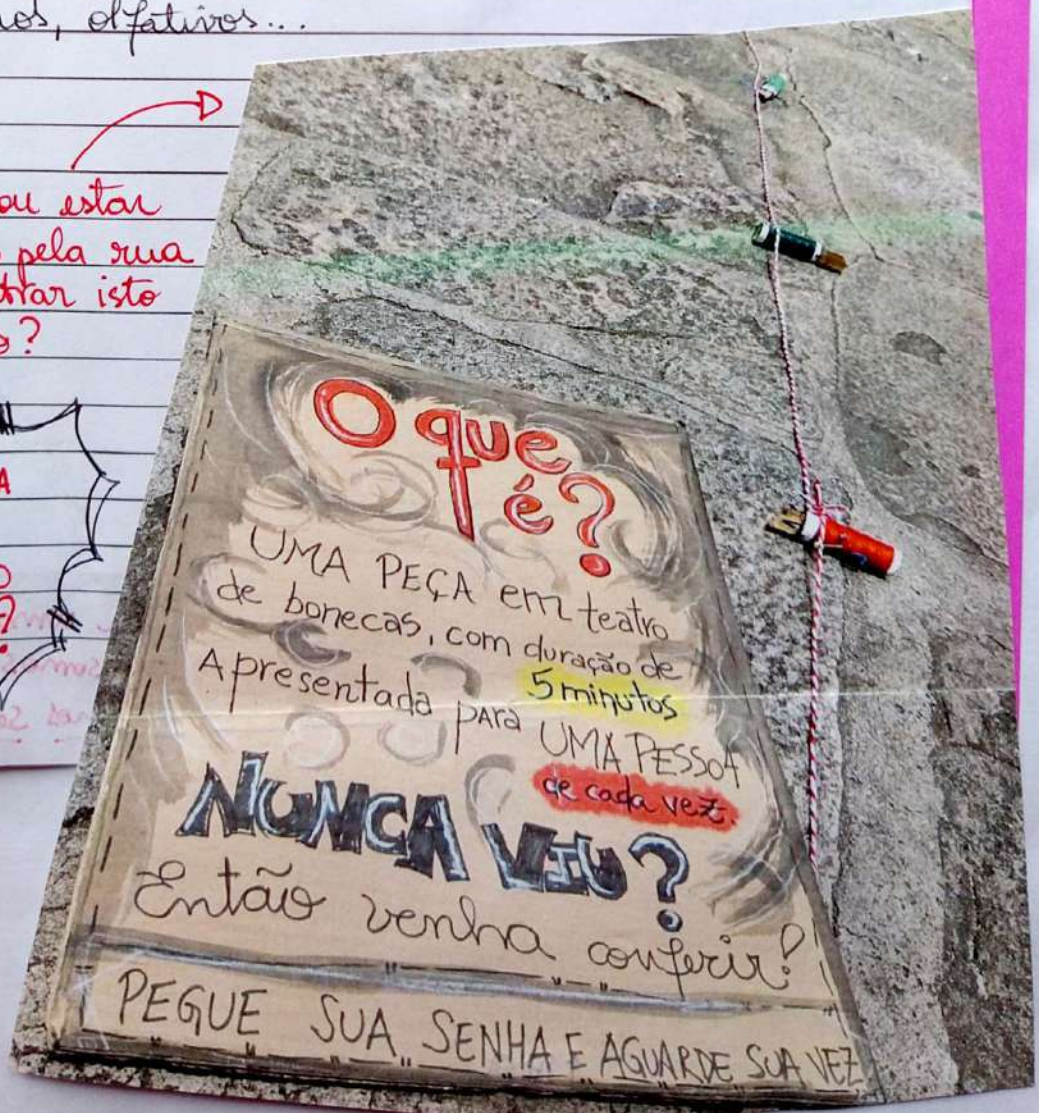 olfativos...
ou estar
pela rua
isto
?
A
O que
é?
UMA PEÇA em teatro
de bonecas, com duração de
5 minutos
Apresentada para UMA PESSOA
de cada vez.
NUNCA VIU?
Então venha conferir!
PEGUE SUA SENHA E AGUARDE SUA VEZ